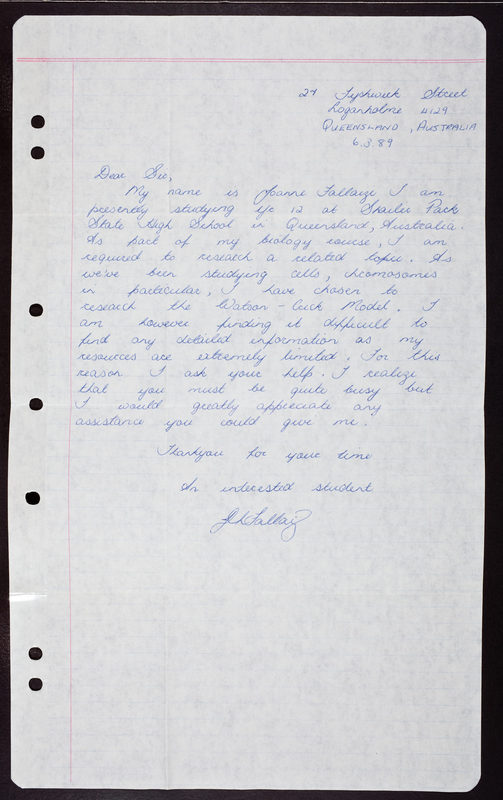 27 Fyshwick Street
Loganholme 4129
QUEENSLAND, AUSTRALIA
6.3.89
Dear Sir,
My name is Joanne Fallaize I am
presently studying yr 12 at Shailer Park
State High School in Queensland, Australia.
As part of my biology course, I am
required to research a related topic. As
we've been studying cells, chromosomes
in particular, I have chosen to
research the Watson-Crick Model. I
am however finding it difficult to
find any detailed information as my
resources are extremely limited. For this
reason I ask your help. I realize
that you must be quite busy but
I would greatly appreciate any
assistance you could give me.
Thankyou for your time
An interested student